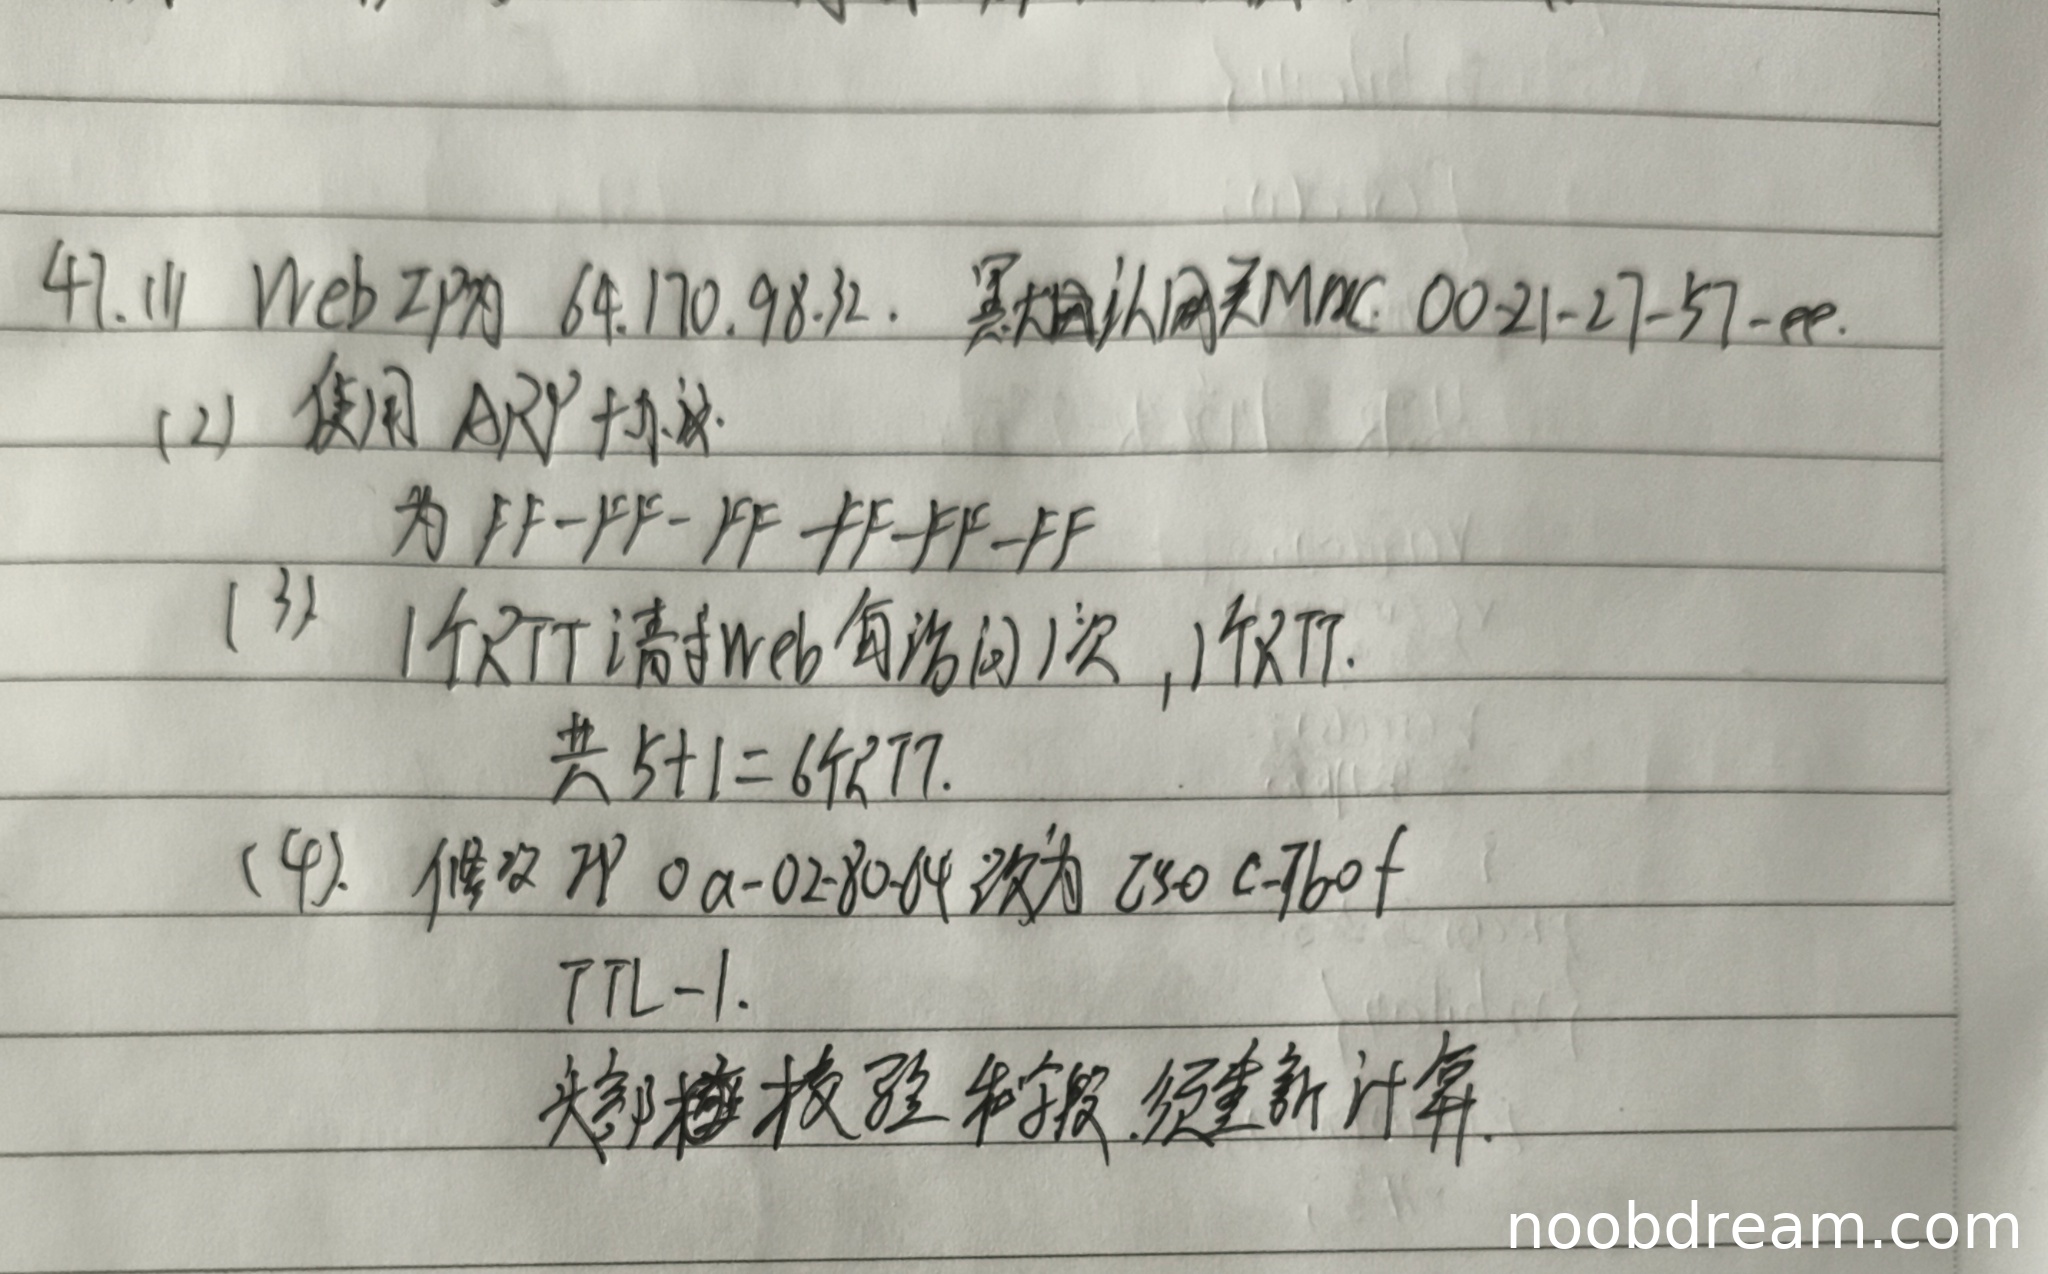 47.(1) Web IP为 64.170.98.32. 默认网关MAC 00-21-27-57-ee.
(2) 使用 ARP 协议.
为 FF-FF-FF-FF-FF-FF
(3) 1个RTT请求Web 每访问1次,1个RTT.
共 5+1=6个RTT.
(4). 修改 IP 0a-02-80-64 改为
TTL-1.
头部校验和字段.须重新计算.
noobdream.com